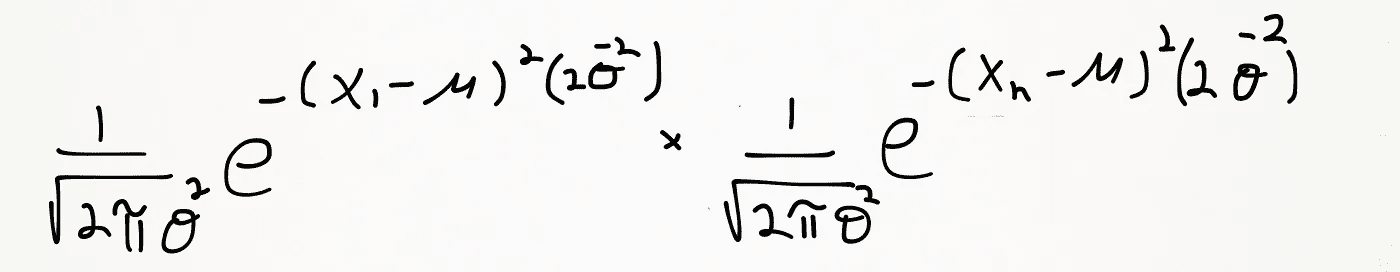 $\frac{1}{\sqrt{2\pi\sigma^2}} e^{-(x_1-\mu)^2(2\sigma^{-2})} \times \frac{1}{\sqrt{2\pi\sigma^2}} e^{-(x_n-\mu)^2(2\sigma^{-2})}$